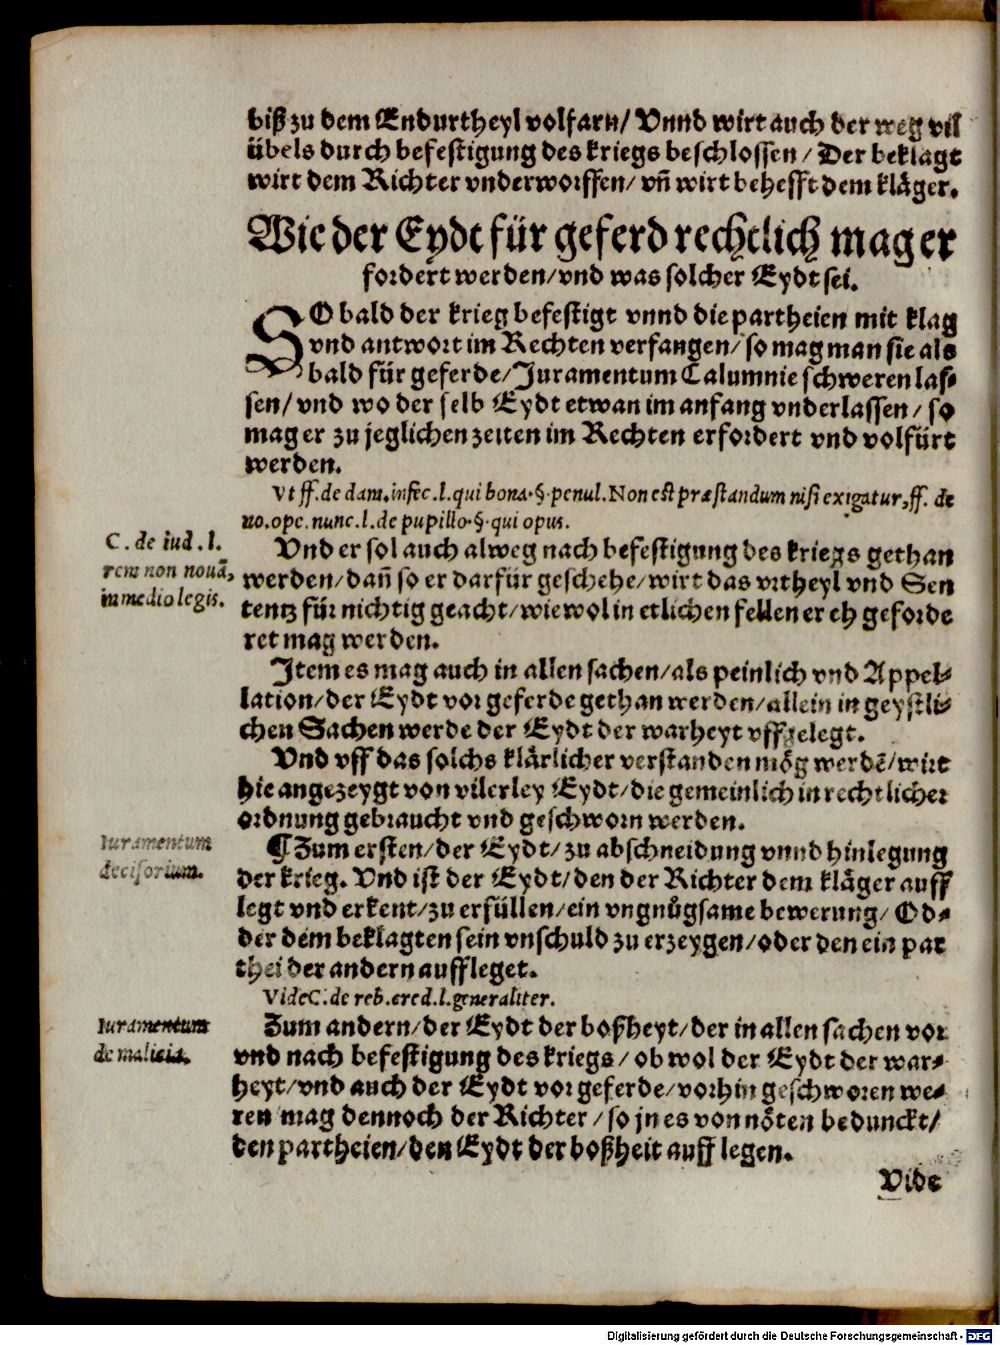 biß zu dem Endurtheyl volfarn/ Vnnd wirt auch der weg vil
übels durch befestigung des kriegs beschlossen/ Der beklagt
wirt dem Richter vnderworffen/ vñ wirt behefft dem kläger.
Wie der Eydt für geferd rechtlich mag er
fordert werden/ vnd was solcher Eydt sei.
SO bald der krieg befestigt vnnd die partheien mit klag
vnd antwort im Rechten verfangen/ so mag man sie als
bald für geferde/ Juramentum Calumnie schweren las-
sen/ vnd wo der selb Eydt etwan im anfang vnderlassen/ so
mag er zu jeglichen zeiten im Rechten erfordert vnd volfürt
werden.
Vt ff. de dam. infec. l. qui bona. §. penul. Non est præstandum nisi exigatur, ff. de
no. ope. nunc. l. de pupillo. §. qui opus.
C. de iud. l.
rem non nouã,
in medio legis.
Vnd er sol auch alweg nach befestigung des kriegs gethan
werden/ dañ so er darfür geschehe/ wirt das vrtheyl vnd Sen
tentz für nichtig geacht/ wiewol in etlichen fellen er eh geforde
ret mag werden.
Item es mag auch in allen sachen/ als peinlich vnd Appel-
lation/ der Eydt vor geferde gethan werden/ allein in geystli-
chen Sachen werde der Eydt der warheyt vffgelegt.
Vnd vff das solchs klärlicher verstanden mög werdē/ wirt
hie angezeygt von vilerley Eydt/ die gemeinlich in rechtlicher
ordnung gebraucht vnd geschworn werden.
Iuramentum
decisorium.
¶ Zum ersten/ der Eydt/ zu abschneidung vnnd hinlegung
der krieg. Vnd ist der Eydt/ den der Richter dem kläger auff
legt vnd erkent/ zu erfüllen/ ein vngnůgsame bewerung/ Od-
der dem beklagten sein vnschuld zu erzeygen/ oder den ein par
thei der andern auffleget.
Vide C. de reb. cred. l. generaliter.
Iuramentum
de malicia.
Zum andern/ der Eydt der boßheyt/ der in allen sachen vor
vnd nach befestigung des kriegs/ ob wol der Eydt der war-
heyt/ vnd auch der Eydt vor geferde/ vorhin geschworen we-
ren mag dennoch der Richter/ so jn es von nöten bedunckt/
den partheien/ den Eydt der boßheit auff legen.
Vide
Digitalisierung gefördert durch die Deutsche Forschungsgemeinschaft - DFG